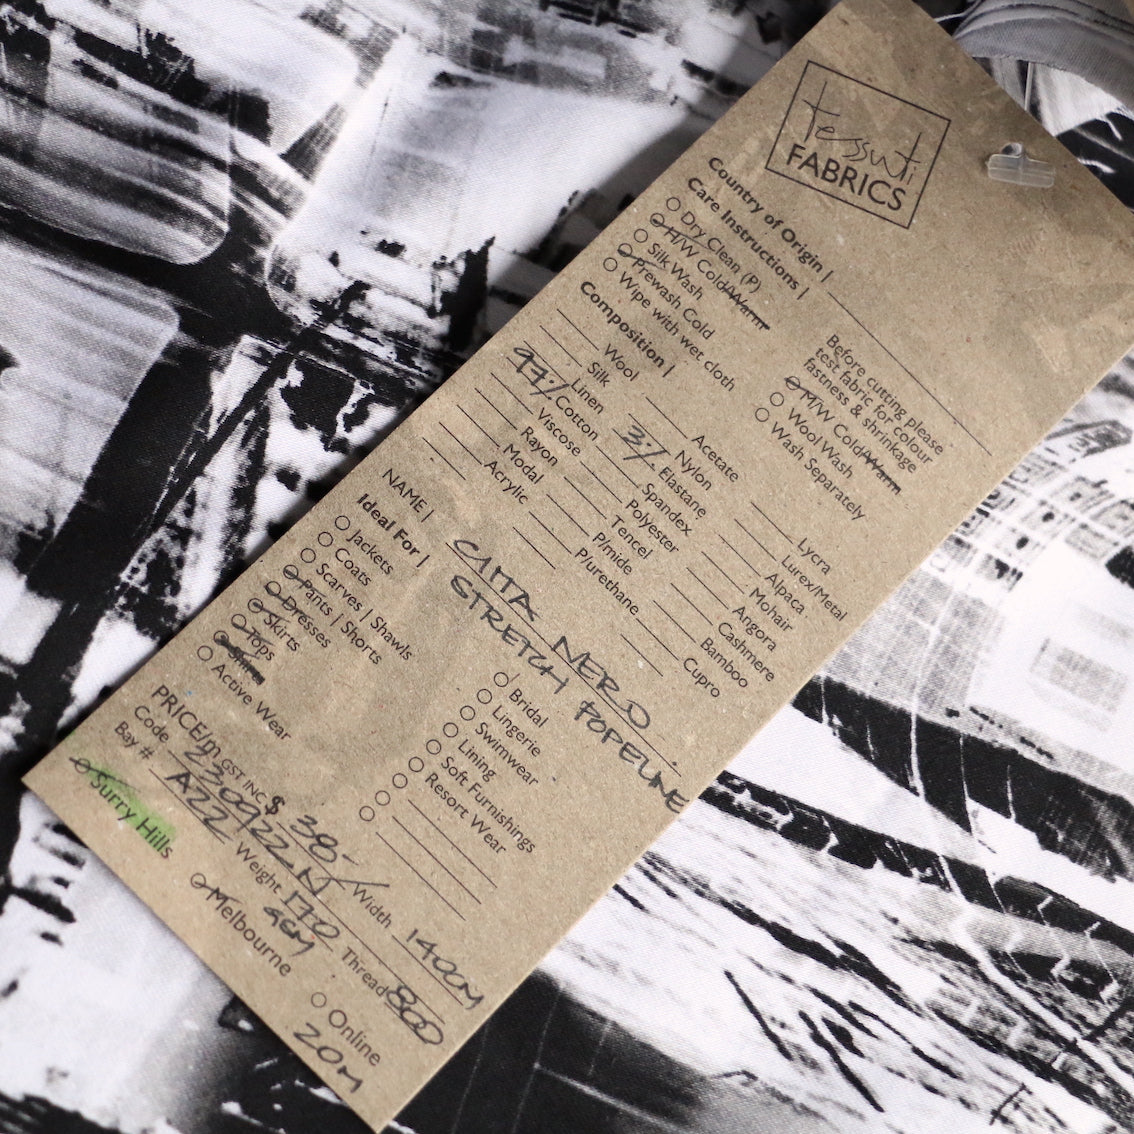 tessuti
FABRICS
Country of Origin |
Care Instructions |
Dry Clean (P)
H/W Cold/Warm
Silk Wash
Prewash Cold
Wipe with wet cloth
Before cutting please
test fabric for colour
fastness & shrinkage
M/W Cold/Warm
Wool Wash
Wash Separately
Composition |
Wool
Silk
Linen
97% Cotton
Viscose
Rayon
Modal
Acrylic
Acetate
Nylon
3% Elastane
Spandex
Polyester
Tencel
P/mide
P/urethane
Lycra
Lurex/Metal
Alpaca
Mohair
Angora
Cashmere
Bamboo
Cupro
NAME | CITTA NERO
STRETCH POPELINE
Ideal For |
Jackets
Coats
Scarves | Shawls
Pants | Shorts
Dresses
Skirts
Tops
Active Wear
Bridal
Lingerie
Swimwear
Lining
Soft Furnishings
Resort Wear
PRICE/m GST INC $ 38-
Code 230922-N Width 140CM
Bay # A222 Weight 170 GSM Thread 800
Surry Hills
Melbourne
Online
20M